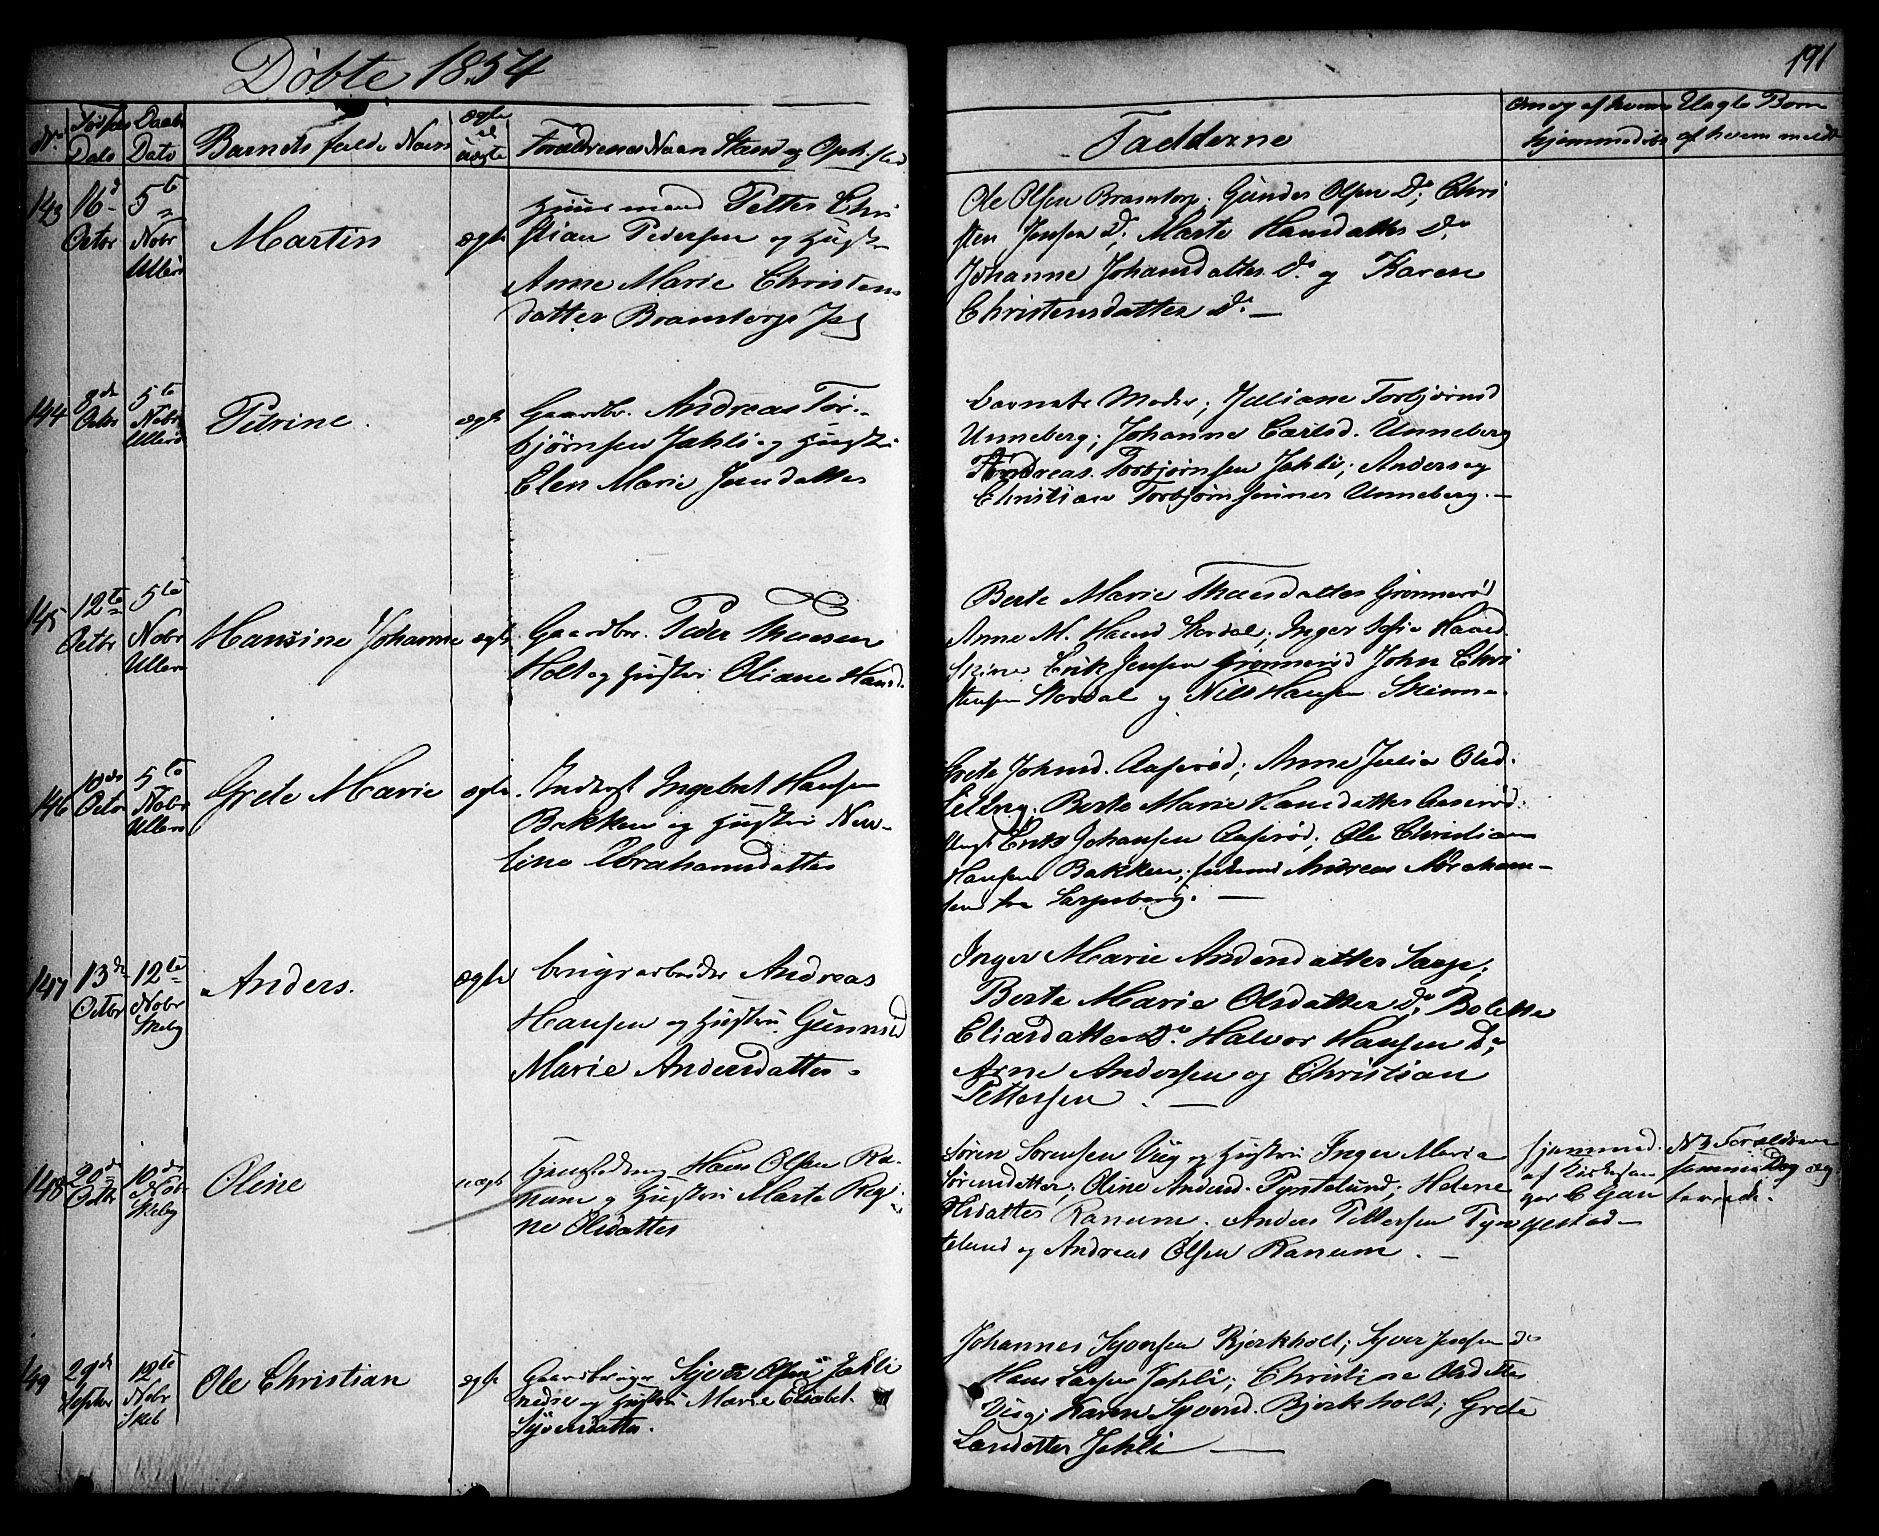 Døbte 1854
191
No
Fødsels Dato
Daabs Dato
Barnets fulde Navn
ægte el uægte
Forældrenes Navn Stand og Opholdsted
Fadderne
Om og af hvem
hjemmedøbt
Uægte Børn
af hvem meldt
143
16d
Octbr
5te
Nobr
Ullerø
Martin
ægte
Huusmand Petter Chri
stian Pedersen og Hust
Anne Marie Christens
datter Bramstorp
Ole Olsen Bramstorp; Gunder Olsen Do; Chri
sten Jensen Do; Marte Hansdatter Do
Johanne Johansdatter Do og Karen
Christensdatter Do —
144
8de
Octbr
5te
Nobr
Ullerø
Petrine.
ægte
Gaardbr. Andreas Tor-
bjørnsen Jahli og Hustri
Elen Marie Jensdatter
Barnets Moder; Juliane Torbjørnsd
Unneberg; Johanne Carlsd. Unneberg
Andreas Torbjørnsen Jahli; Anders og
Christian Torbjørnsønner Unneberg. —
145
12te
Octbr
5te
Nobr
Ullerø
Hansine Johanne
ægte
Gaardbr. Peder Thuesen
Holt og Hustri Oliane Hansd.
Berte Marie Thuesdatter Grønnerød
Anne M. Hansd Stordal; Inger Sofie Hansd.
Skinne Erik Jensen Grønnerød John Chri
stensen Stordal og Nils Hansen Skinne
146
10de
Octbr
5te
Nobr
Ullerø
Grete Marie
ægte
Inderst Ingebret Hansen
Bakken og Hustri Nex-
line Abrahamsdatter
Grete Johnsd. Aaserød; Anne Julie Olsd.
Berte Marie Hansdatter Aaserød.
Ungk Erik Johansen Aaserød; Ole Christian
Hansen Bakken; Andreas Abraham-
sen fra Sarpsborg. —
147
13de
Octbr
12te
Nobr
Skeby
Anders.
ægte
brugsarbeider Andreas
Hansen og Hustri Gunnild
Marie Andersdatter
Inger Marie Andersdatter Sarp;
Berte Marie Olsdatter Do; Bolette
Eliasdatter Do. Halvor Hansen Do;
Arne Andersen og Christian
Pettersen. —
148
20de
Octbr
Nobr
Skeby
Oline
uægte
Hans Olsen Ra-
num og Hustri Marte Regi-
ne Olsdatter
Søren Sørensen Viig og Hustri Inger Marie
Sørensdatter; Oline Andersd. Pyntelund; Helene
Olsdatter Ranum. Anders Pettersen Pyn
telund og Andreas Olsen Ranum. —
hjemmed.
af Kirkesan
ger C Gan
gestad
NB Forældrene
samme Dag
149
29de
Septbr
12te
Nobr
Skeb
Ole Christian
ægte
Gaardbruger Syver Olsen Jahli
nedre og Hustri Marie Elisabet
Syversdatter.
Johannes Syversen Bjørkholt; Syver Jensen do
Hans Larsen Jahli; Christine Olsdatter
Viig; Karen Syversd. Bjørkholt; Grete
Larsdatter Jahli —